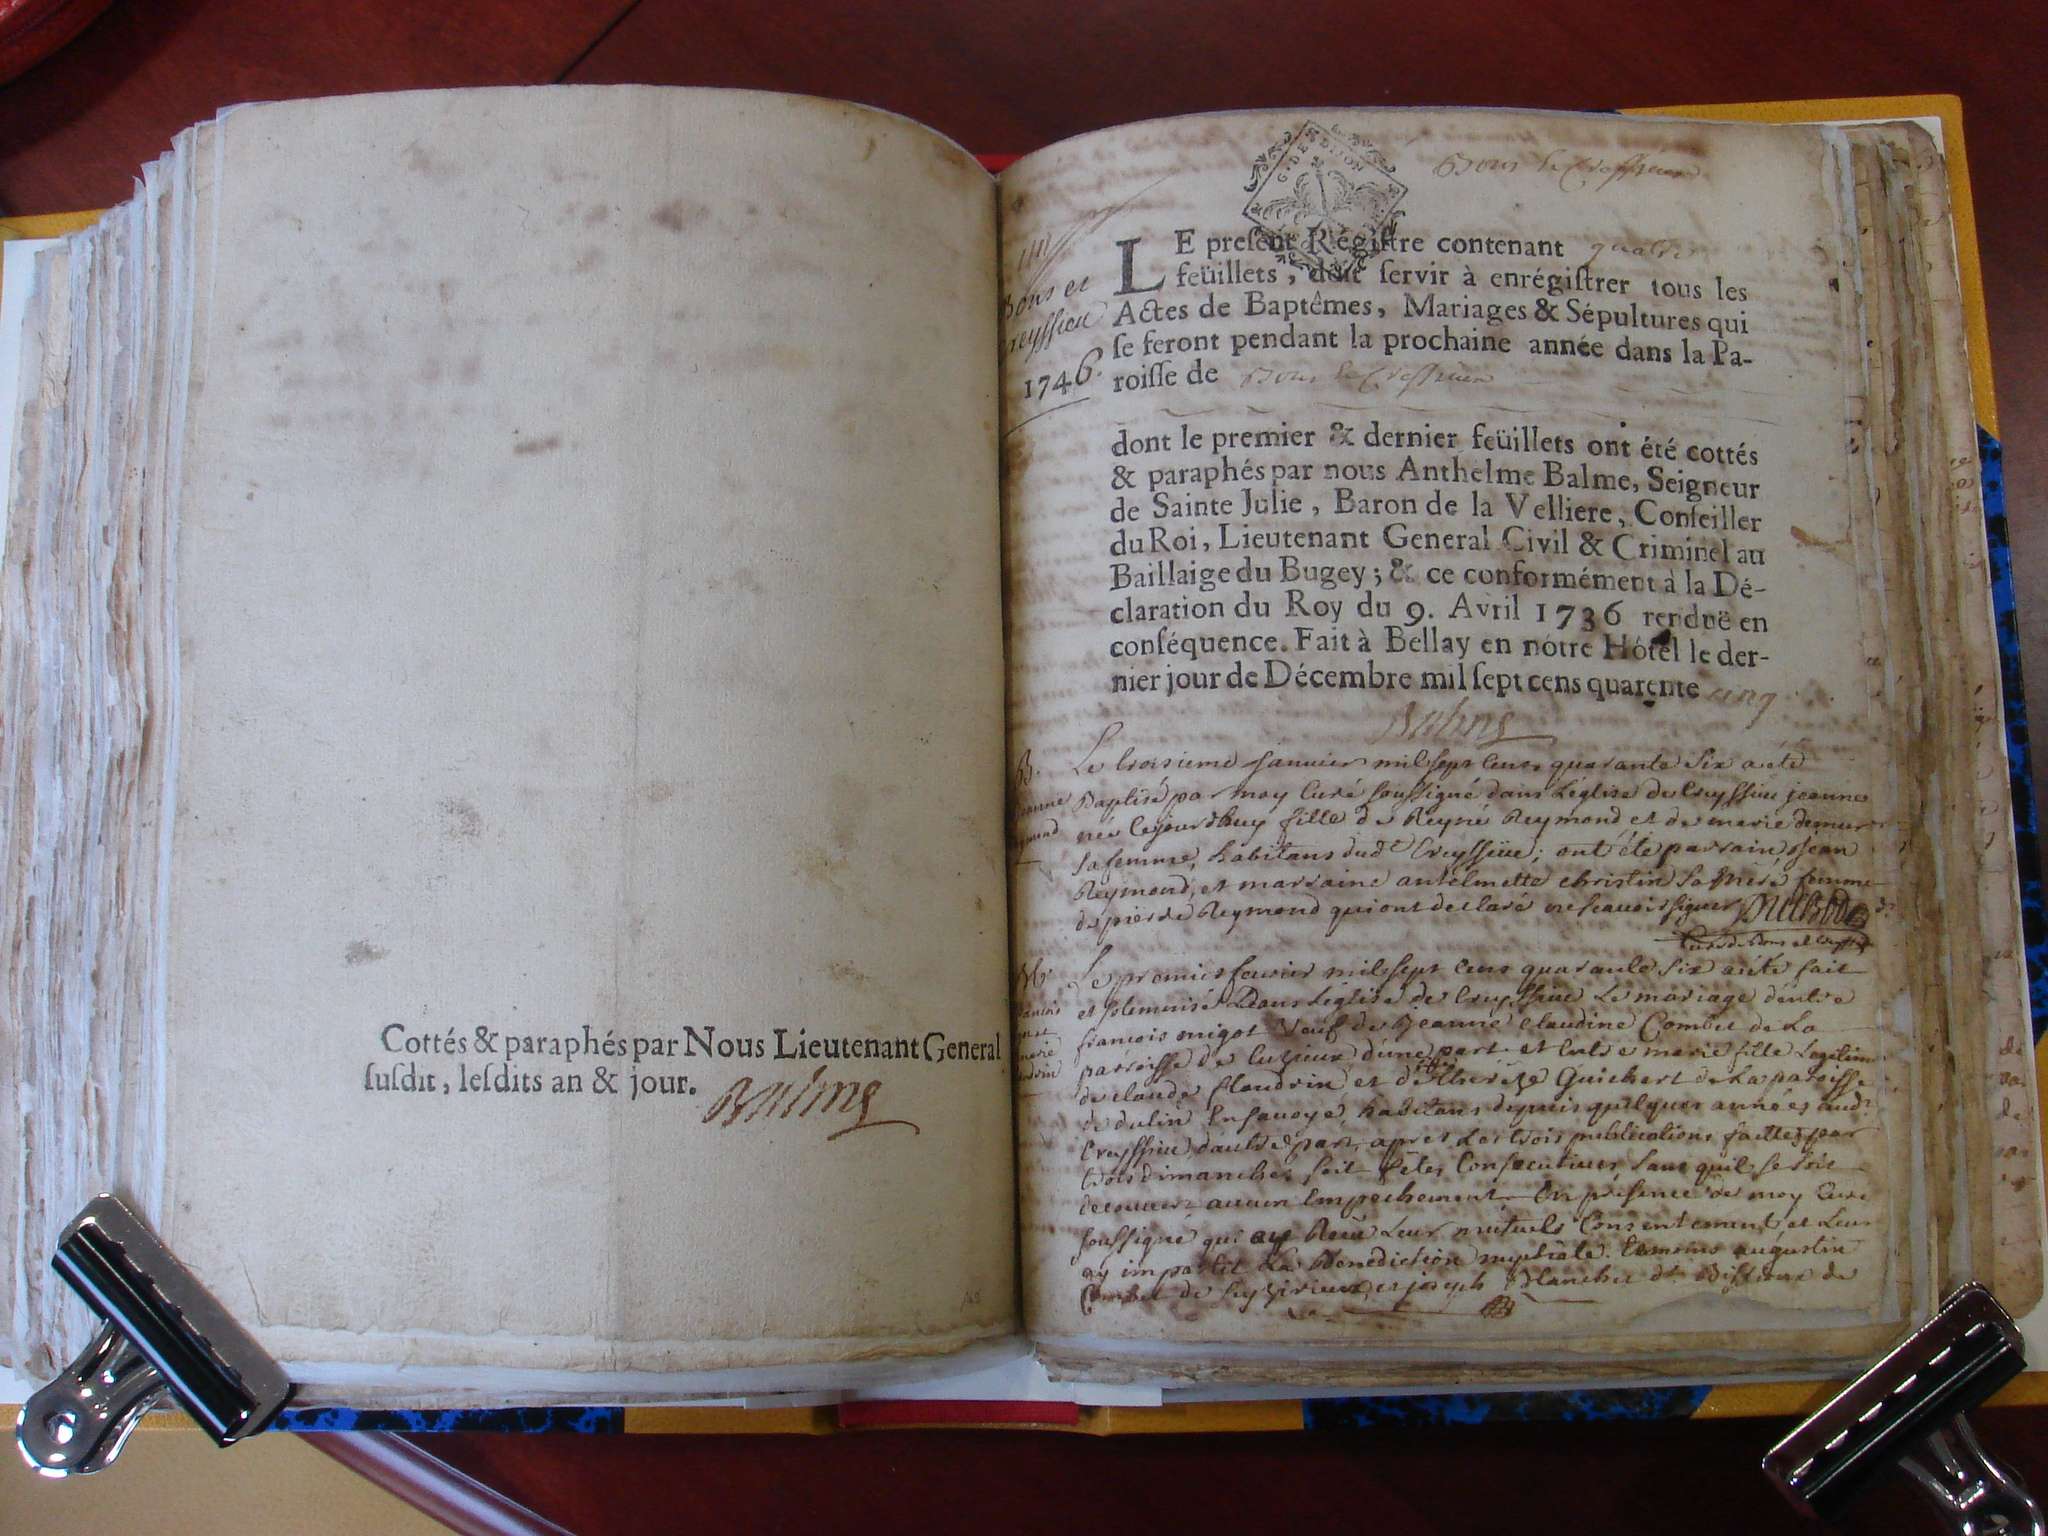 Cottés & paraphés par Nous Lieutenant General
ſuſdit, leſdits an & jour.
Balme
Bons & Cressieu
G. DE DIJON
1746.
LE preſent Régiſtre contenant quatre
feüillets, doit ſervir à enrégiſtrer tous les
Actes de Baptêmes, Mariages & Sépultures qui
ſe feront pendant la prochaine année dans la Pa-
roiſſe de Bons &
dont le premier & dernier feüillets ont été cottés
& paraphés par nous Anthelme Balme, Seigneur
de Sainte Julie, Baron de la Velliere, Conſeiller
du Roi, Lieutenant General Civil & Criminel au
Baillaige du Bugey; & ce conformément à la Dé-
claration du Roy du 9. Avril 1736 renduë en
conſéquence. Fait à Bellay en nôtre Hôtel le der-
nier jour de Décembre mil ſept cens quarente cinq
Balme
B.
Le troisieme janvier mil sept cens quarante six a été
Baptisé par moy Curé soussigné dans L'eglise de Creyssieu jeanne
née Cejourdhuy fille de Reymond et de marie demur
sa femme, habitans dud.t Creyssieu; ont été parrain jean
Reymond, et marraine antelmette christin femme
de pierre Reymond qui ont declaré ne scauoir signer
Curé de Bons et
M.
Le premier feurier mil sept cens quarante six a été fait
et solemnisé Dans L'eglise de Creyssieu Le mariage d'entre
francois migot Veuf de jeanne claudine Combet de La
parroisse de d'une part et marie fille Legitime
de claude flandrin et de Therese Guichert de La paroisse
de dulin En sauoye, habitans depuis quelques années aud.t
Creyssieu d'autre part, apres Les trois publications faittes par
trois dimanches soit fêtes Consecutiues sans quil se soit
decouuert aucun Empechement En présence de moy Curé
soussigné qui ay Receu Leur mutuels Consentement et Leur
ay impartit La Benediction nuptiale. temoins augustin
Combet de et joseph de